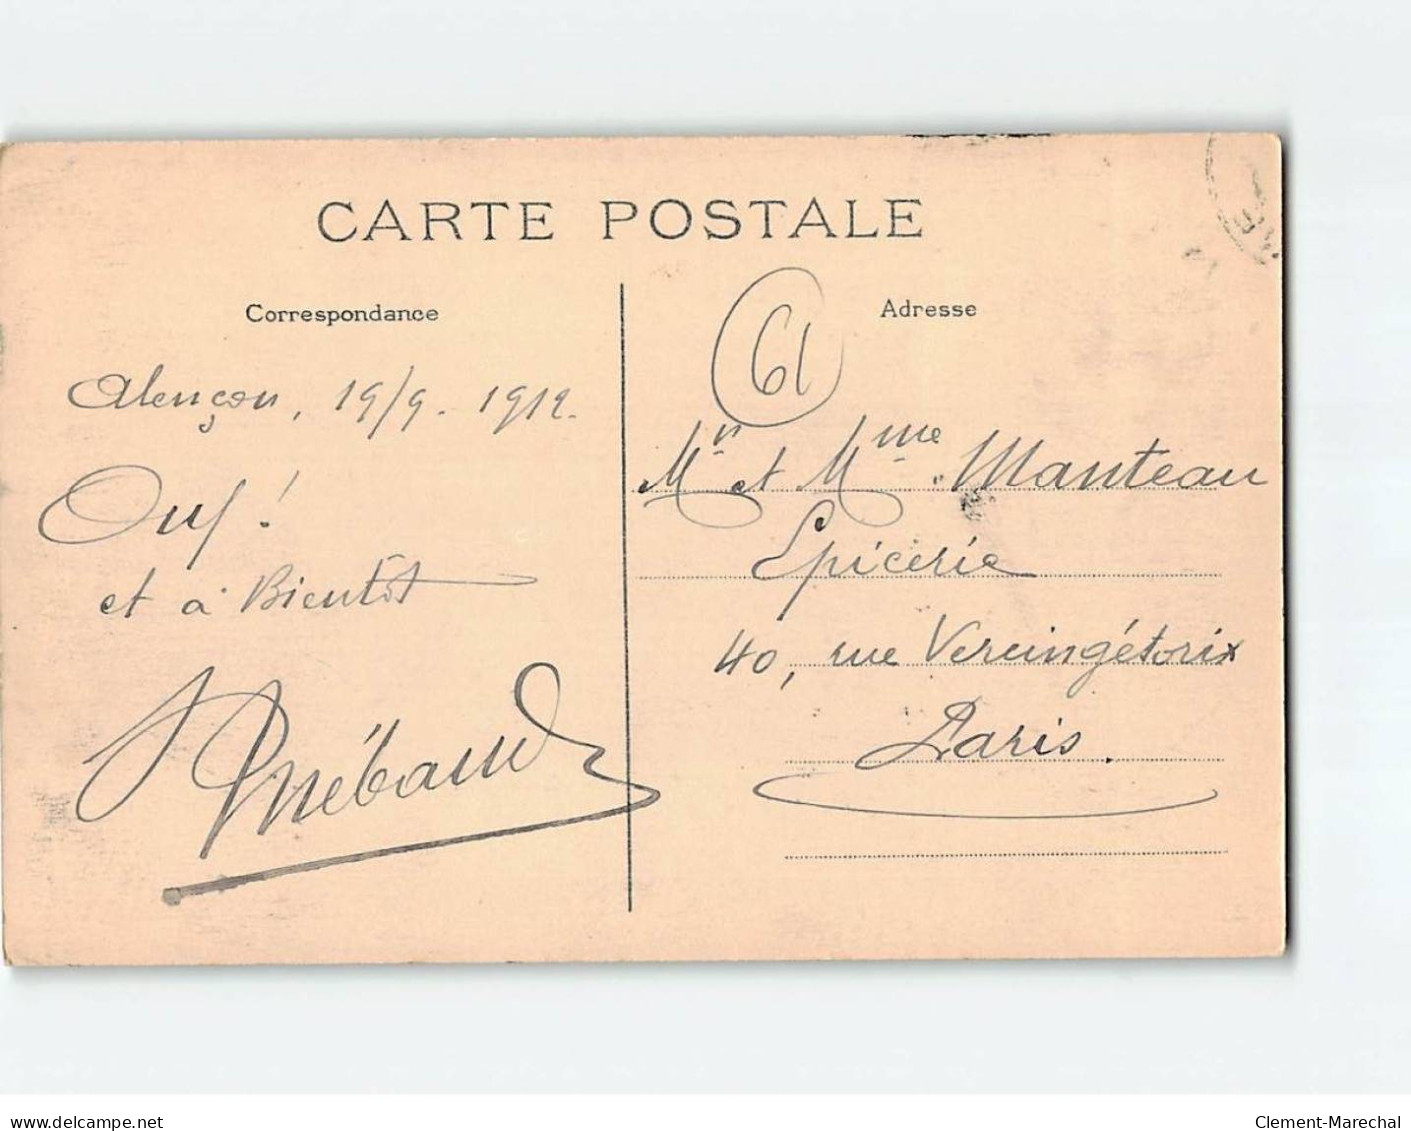 CARTE POSTALE
Correspondance
Alençon, 19/9. 1912.
Ouf!
et à Bientôt
Adresse
61
Mr et Mme Manteau
Epicerie
40, rue Vercingétorix
Paris.
delcampe.net
Clement-Marechal